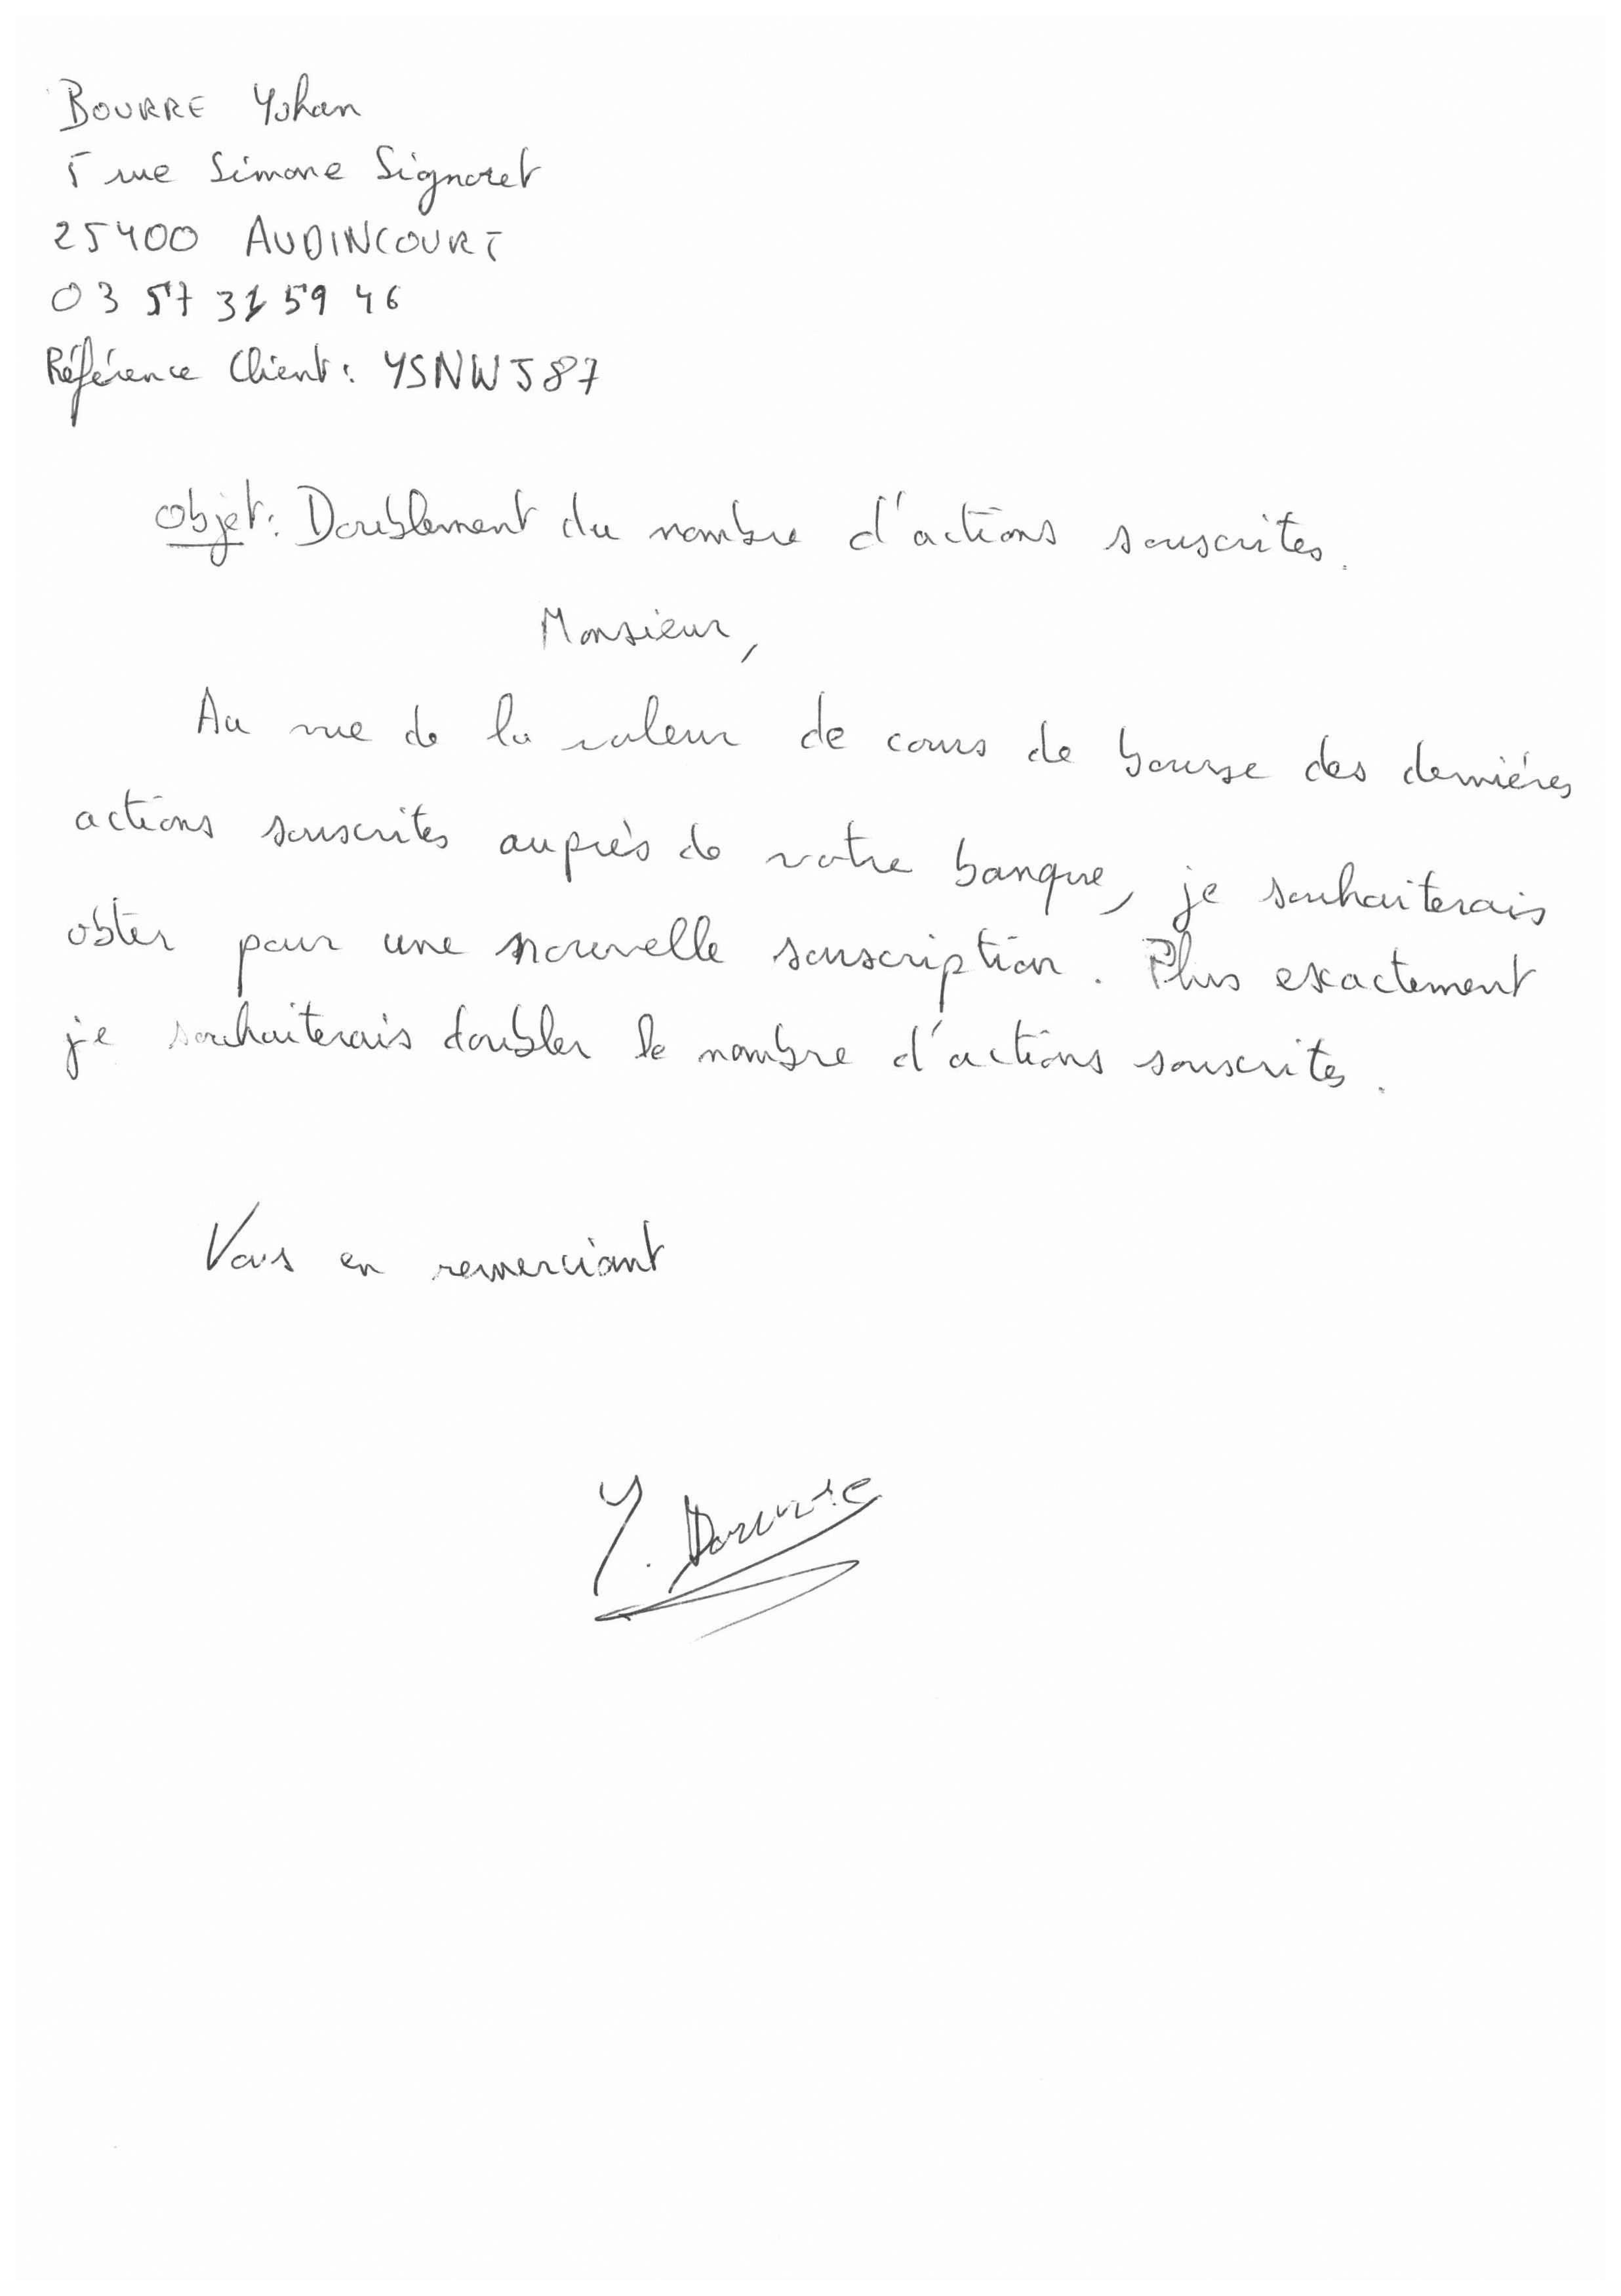 BOURRE Yohan
5 rue Simone Signoret
25400 AUDINCOURT
03 57 31 59 46
Référence Client : YSNWJ87
Objet : Doublement du nombre d'actions souscrites.
Monsieur,
Au vue de la valeur de cours de bourse des derniéres
actions souscrites auprès de votre banque, je souhaiterais
obter pour une nouvelle souscription. Plus exactement
je souhaiterais doubler le nombre d'actions souscrites.
Vous en remerciant
Y. Bourre